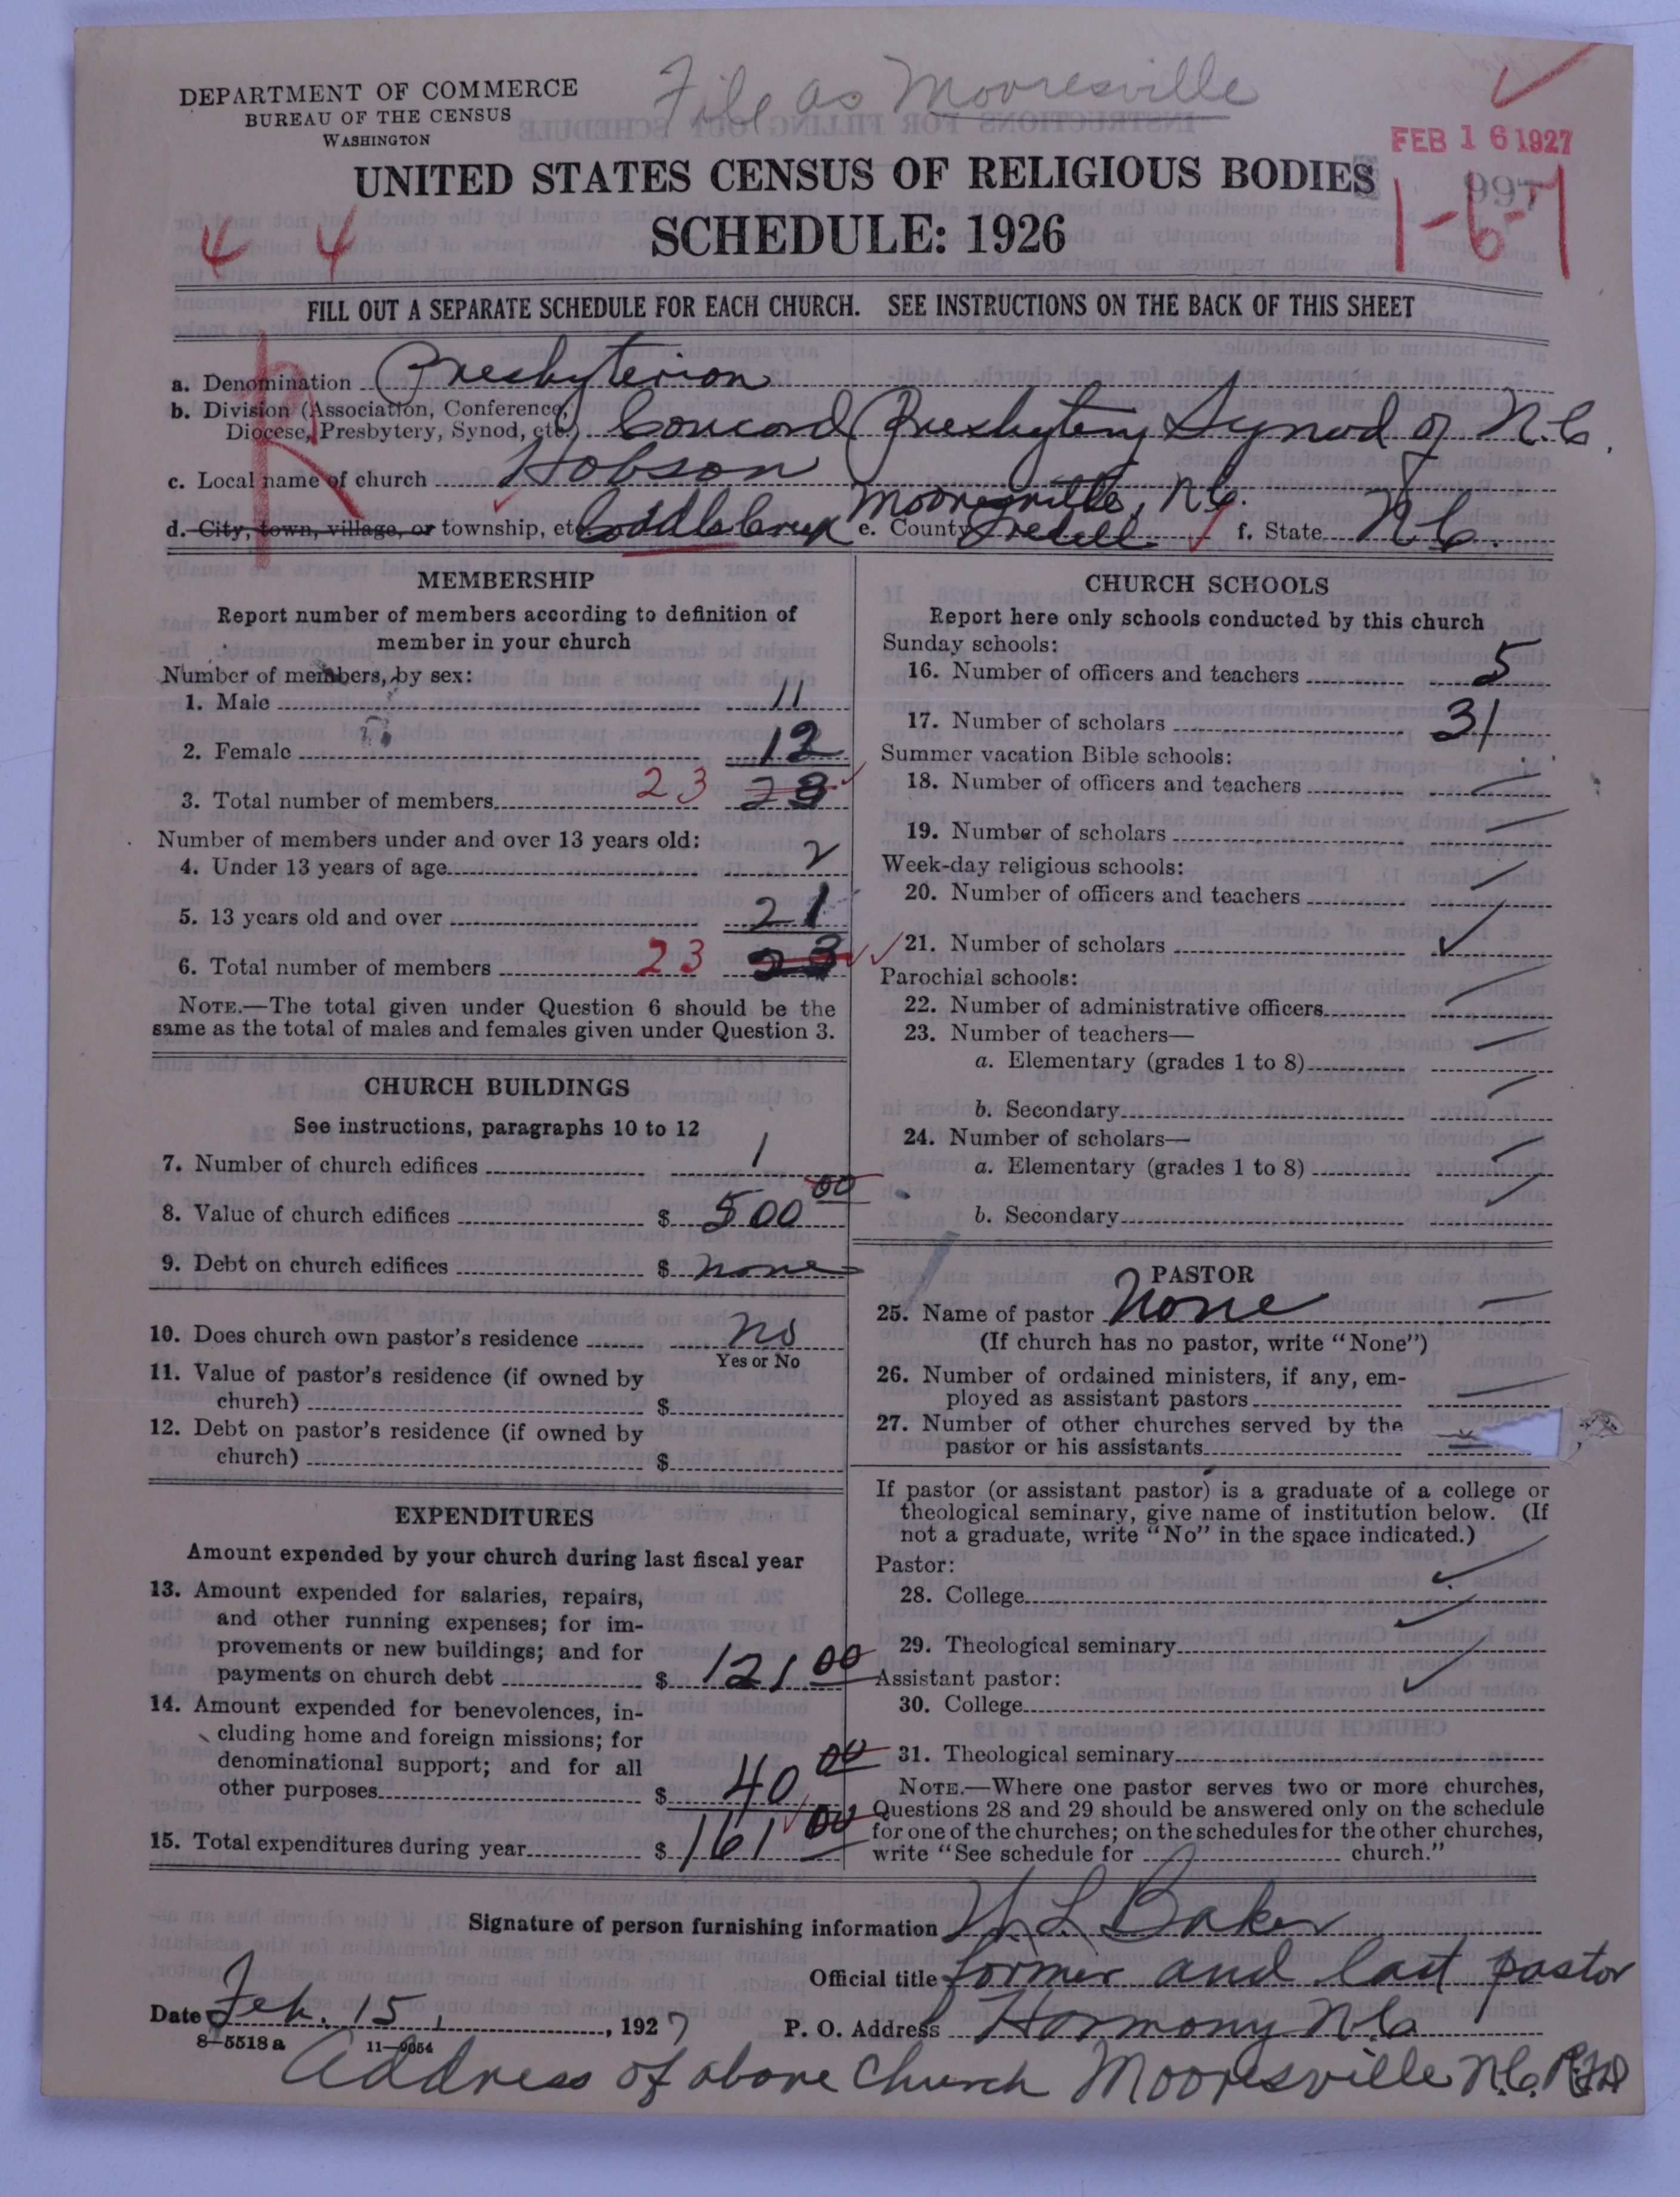 File as Mooresville
DEPARTMENT OF COMMERCE
BUREAU OF THE CENSUS
WASHINGTON
FEB 16 1927
997
1-6-1
UNITED STATES CENSUS OF RELIGIOUS BODIES
SCHEDULE: 1926
4 4
FILL OUT A SEPARATE SCHEDULE FOR EACH CHURCH. SEE INSTRUCTIONS ON THE BACK OF THIS SHEET
a. Denomination Presbyterian
b. Division (Association, Conference, Diocese, Presbytery, Synod, etc.) Concord Presbytery Synod of N.C.
c. Local name of church Hobson
Mooresville, N.C.
d. City, town, village, or township, etc. Coddle Creek e. County Iredell f. State N.C.
MEMBERSHIP
Report number of members according to definition of
member in your church
Number of members, by sex:
1. Male 11
2. Female 12
3. Total number of members 23 23
Number of members under and over 13 years old:
4. Under 13 years of age 2
5. 13 years old and over 21
6. Total number of members 23 23
NOTE.—The total given under Question 6 should be the
same as the total of males and females given under Question 3.
CHURCH BUILDINGS
See instructions, paragraphs 10 to 12
7. Number of church edifices 1
8. Value of church edifices $ 500 00
9. Debt on church edifices $ none
10. Does church own pastor's residence no
Yes or No
11. Value of pastor's residence (if owned by
church) $
12. Debt on pastor's residence (if owned by
church) $
EXPENDITURES
Amount expended by your church during last fiscal year
13. Amount expended for salaries, repairs,
and other running expenses; for im-
provements or new buildings; and for
payments on church debt $ 121 00
14. Amount expended for benevolences, in-
cluding home and foreign missions; for
denominational support; and for all
other purposes $ 40 00
15. Total expenditures during year $ 161 00
CHURCH SCHOOLS
Report here only schools conducted by this church
Sunday schools:
16. Number of officers and teachers 5
17. Number of scholars 31
Summer vacation Bible schools:
18. Number of officers and teachers
19. Number of scholars
Week-day religious schools:
20. Number of officers and teachers
21. Number of scholars
Parochial schools:
22. Number of administrative officers
23. Number of teachers—
a. Elementary (grades 1 to 8)
b. Secondary
24. Number of scholars—
a. Elementary (grades 1 to 8)
b. Secondary
PASTOR
25. Name of pastor None
(If church has no pastor, write "None")
26. Number of ordained ministers, if any, em-
ployed as assistant pastors
27. Number of other churches served by the
pastor or his assistants
If pastor (or assistant pastor) is a graduate of a college or
theological seminary, give name of institution below. (If
not a graduate, write "No" in the space indicated.)
Pastor:
28. College
29. Theological seminary
Assistant pastor:
30. College
31. Theological seminary
NOTE.—Where one pastor serves two or more churches,
Questions 28 and 29 should be answered only on the schedule
for one of the churches; on the schedules for the other churches,
write "See schedule for church."
Signature of person furnishing information W L Baker
Official title former and last pastor
Date Feb. 15, 1927 P. O. Address Harmony N.C.
8—5518a 11—9654
Address of above Church Mooresville N.C. RFD